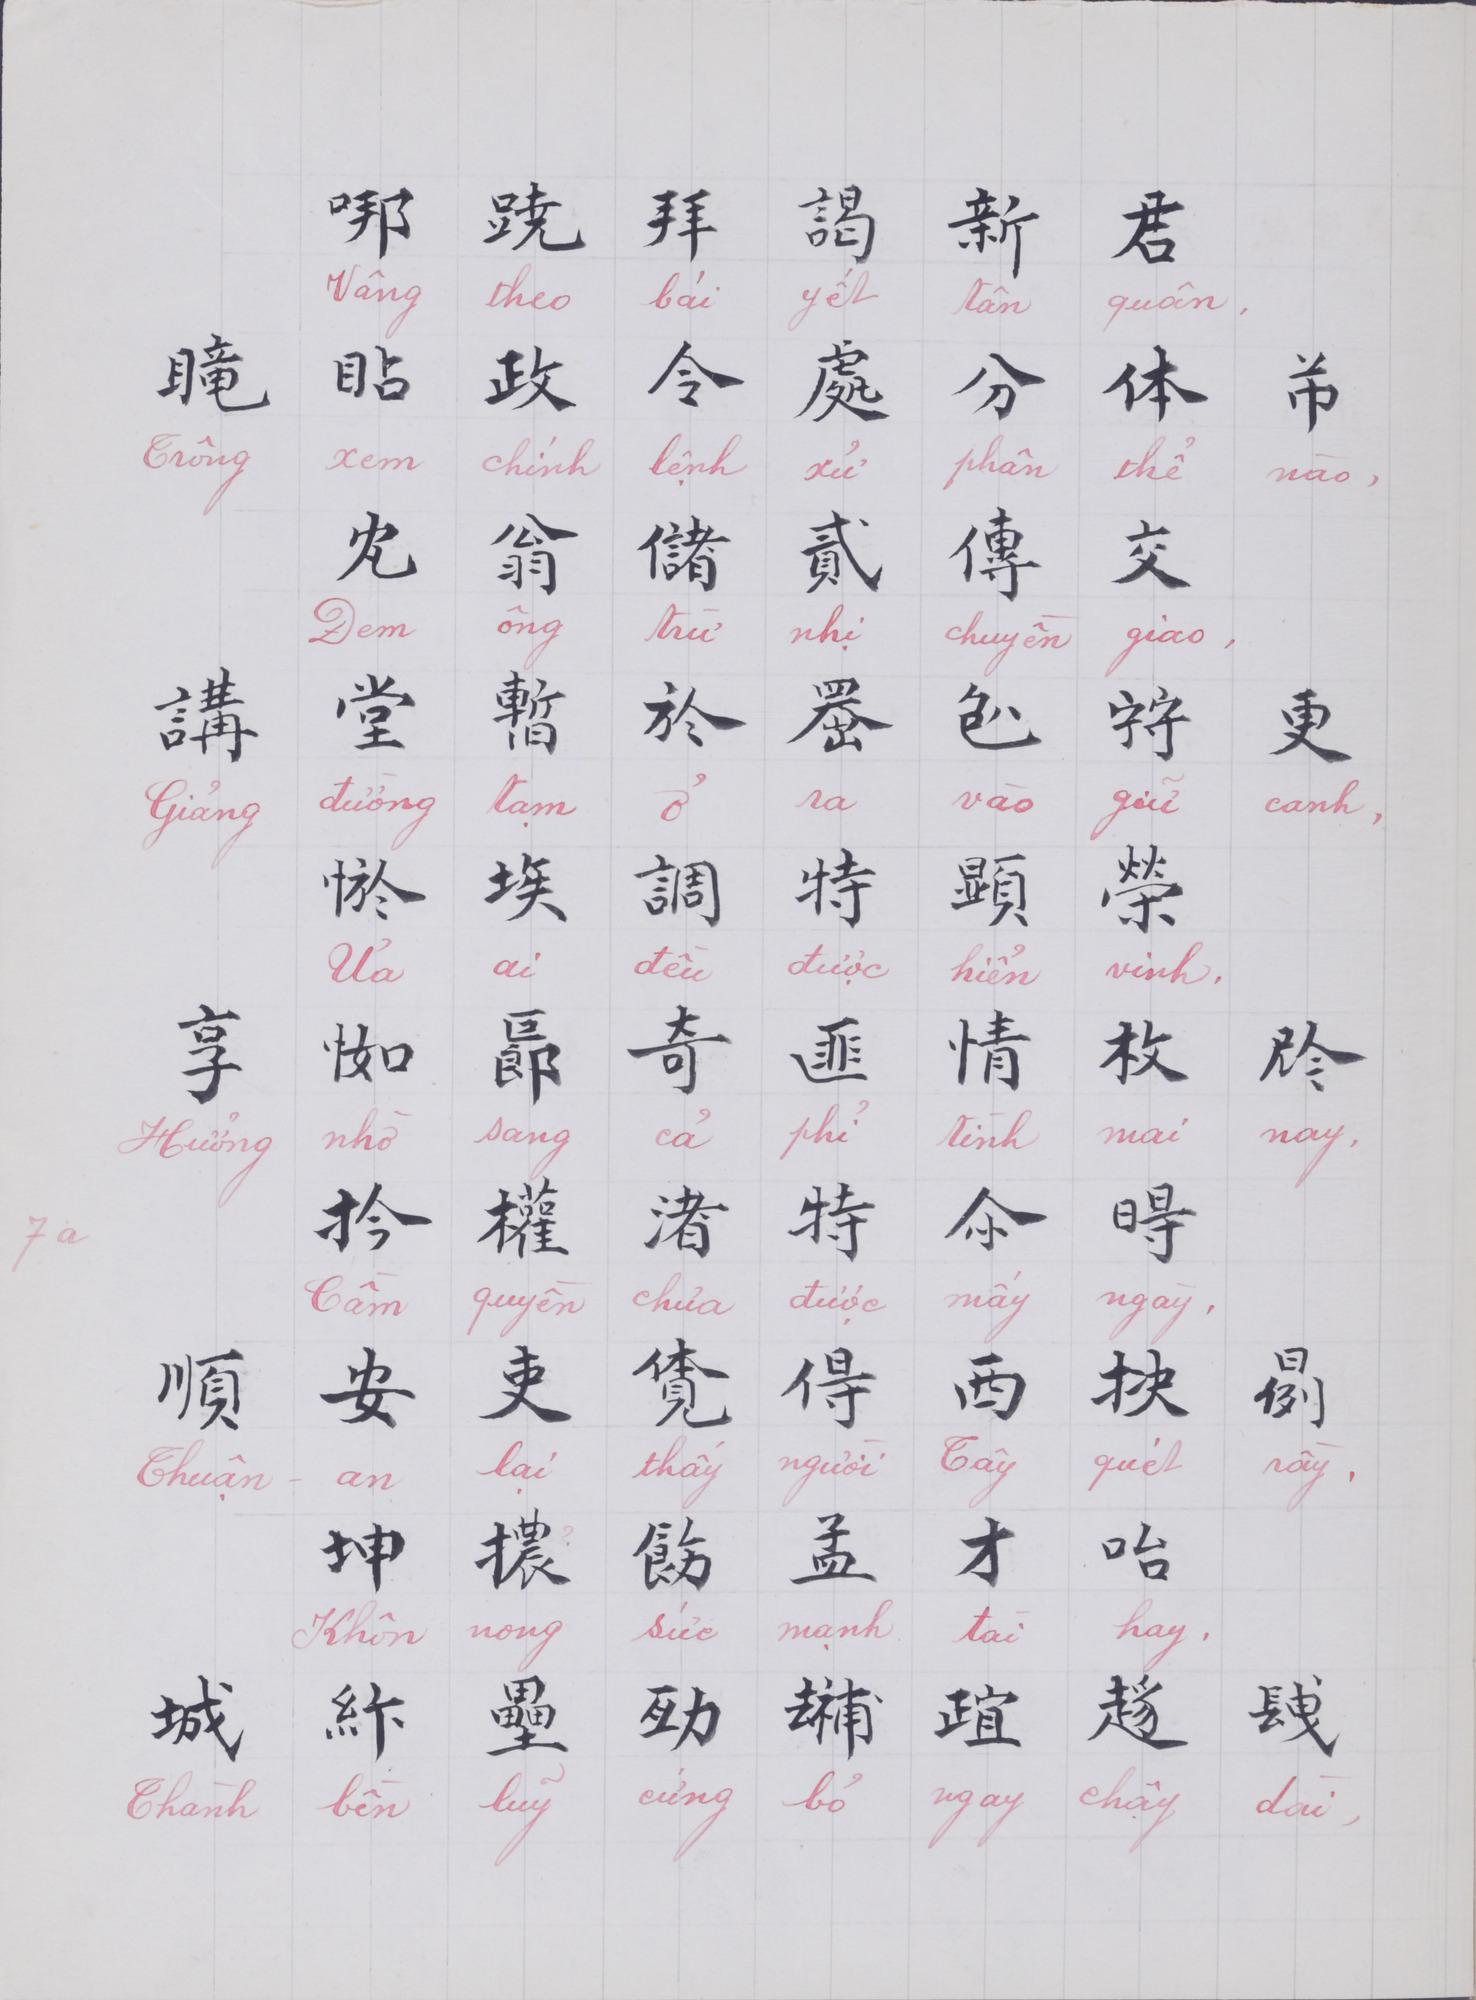 哪 蹺 拜 謁 新 君
Vâng theo bái yết tân quân,
眙 政 令 處 分 体
Trông xem chính lệnh xử phân thể nào,
翁 儲 貳 傳 交
Đem ông trừ nhị chuyền giao,
講 堂 暫 於 𦋦 𠓨 更
Giảng đường tạm ở ra vào giữ canh,
埃 調 特 顕 榮
Ưa ai đều được hiển vinh,
享 奇 匪 情 枚
Hưởng nhờ sang cả phỉ tình mai nay,
扲 權 渚 特 㝵
Cầm quyền chửa được mấy ngày,
順 安 吏 𧡊 得 西 抉
Thuận-an lại thấy người Tây quét rầy,
坤 擃 飭 孟 才 咍
Khôn nong sức mạnh tài hay,
城 壘 劲 𨅸
Thành bền luỹ cứng bỏ ngay chậy dài,
7a